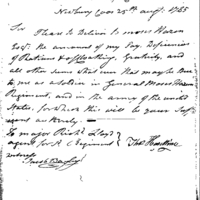 Newbury Coos 25th augt. 1785
Sir Please to Deliver to moses Hazen
Esqr. the amount of my Pay, Depreciation
of Rations & Clothing, Gratuity, and
all other sums that now that may be due
to me as a Soldier in General Moses Hazen
Regiment, and in the army of the united
States, for which this will be your Suff
To major Richd. Lloyd
agent for H. C. Regiment
witness